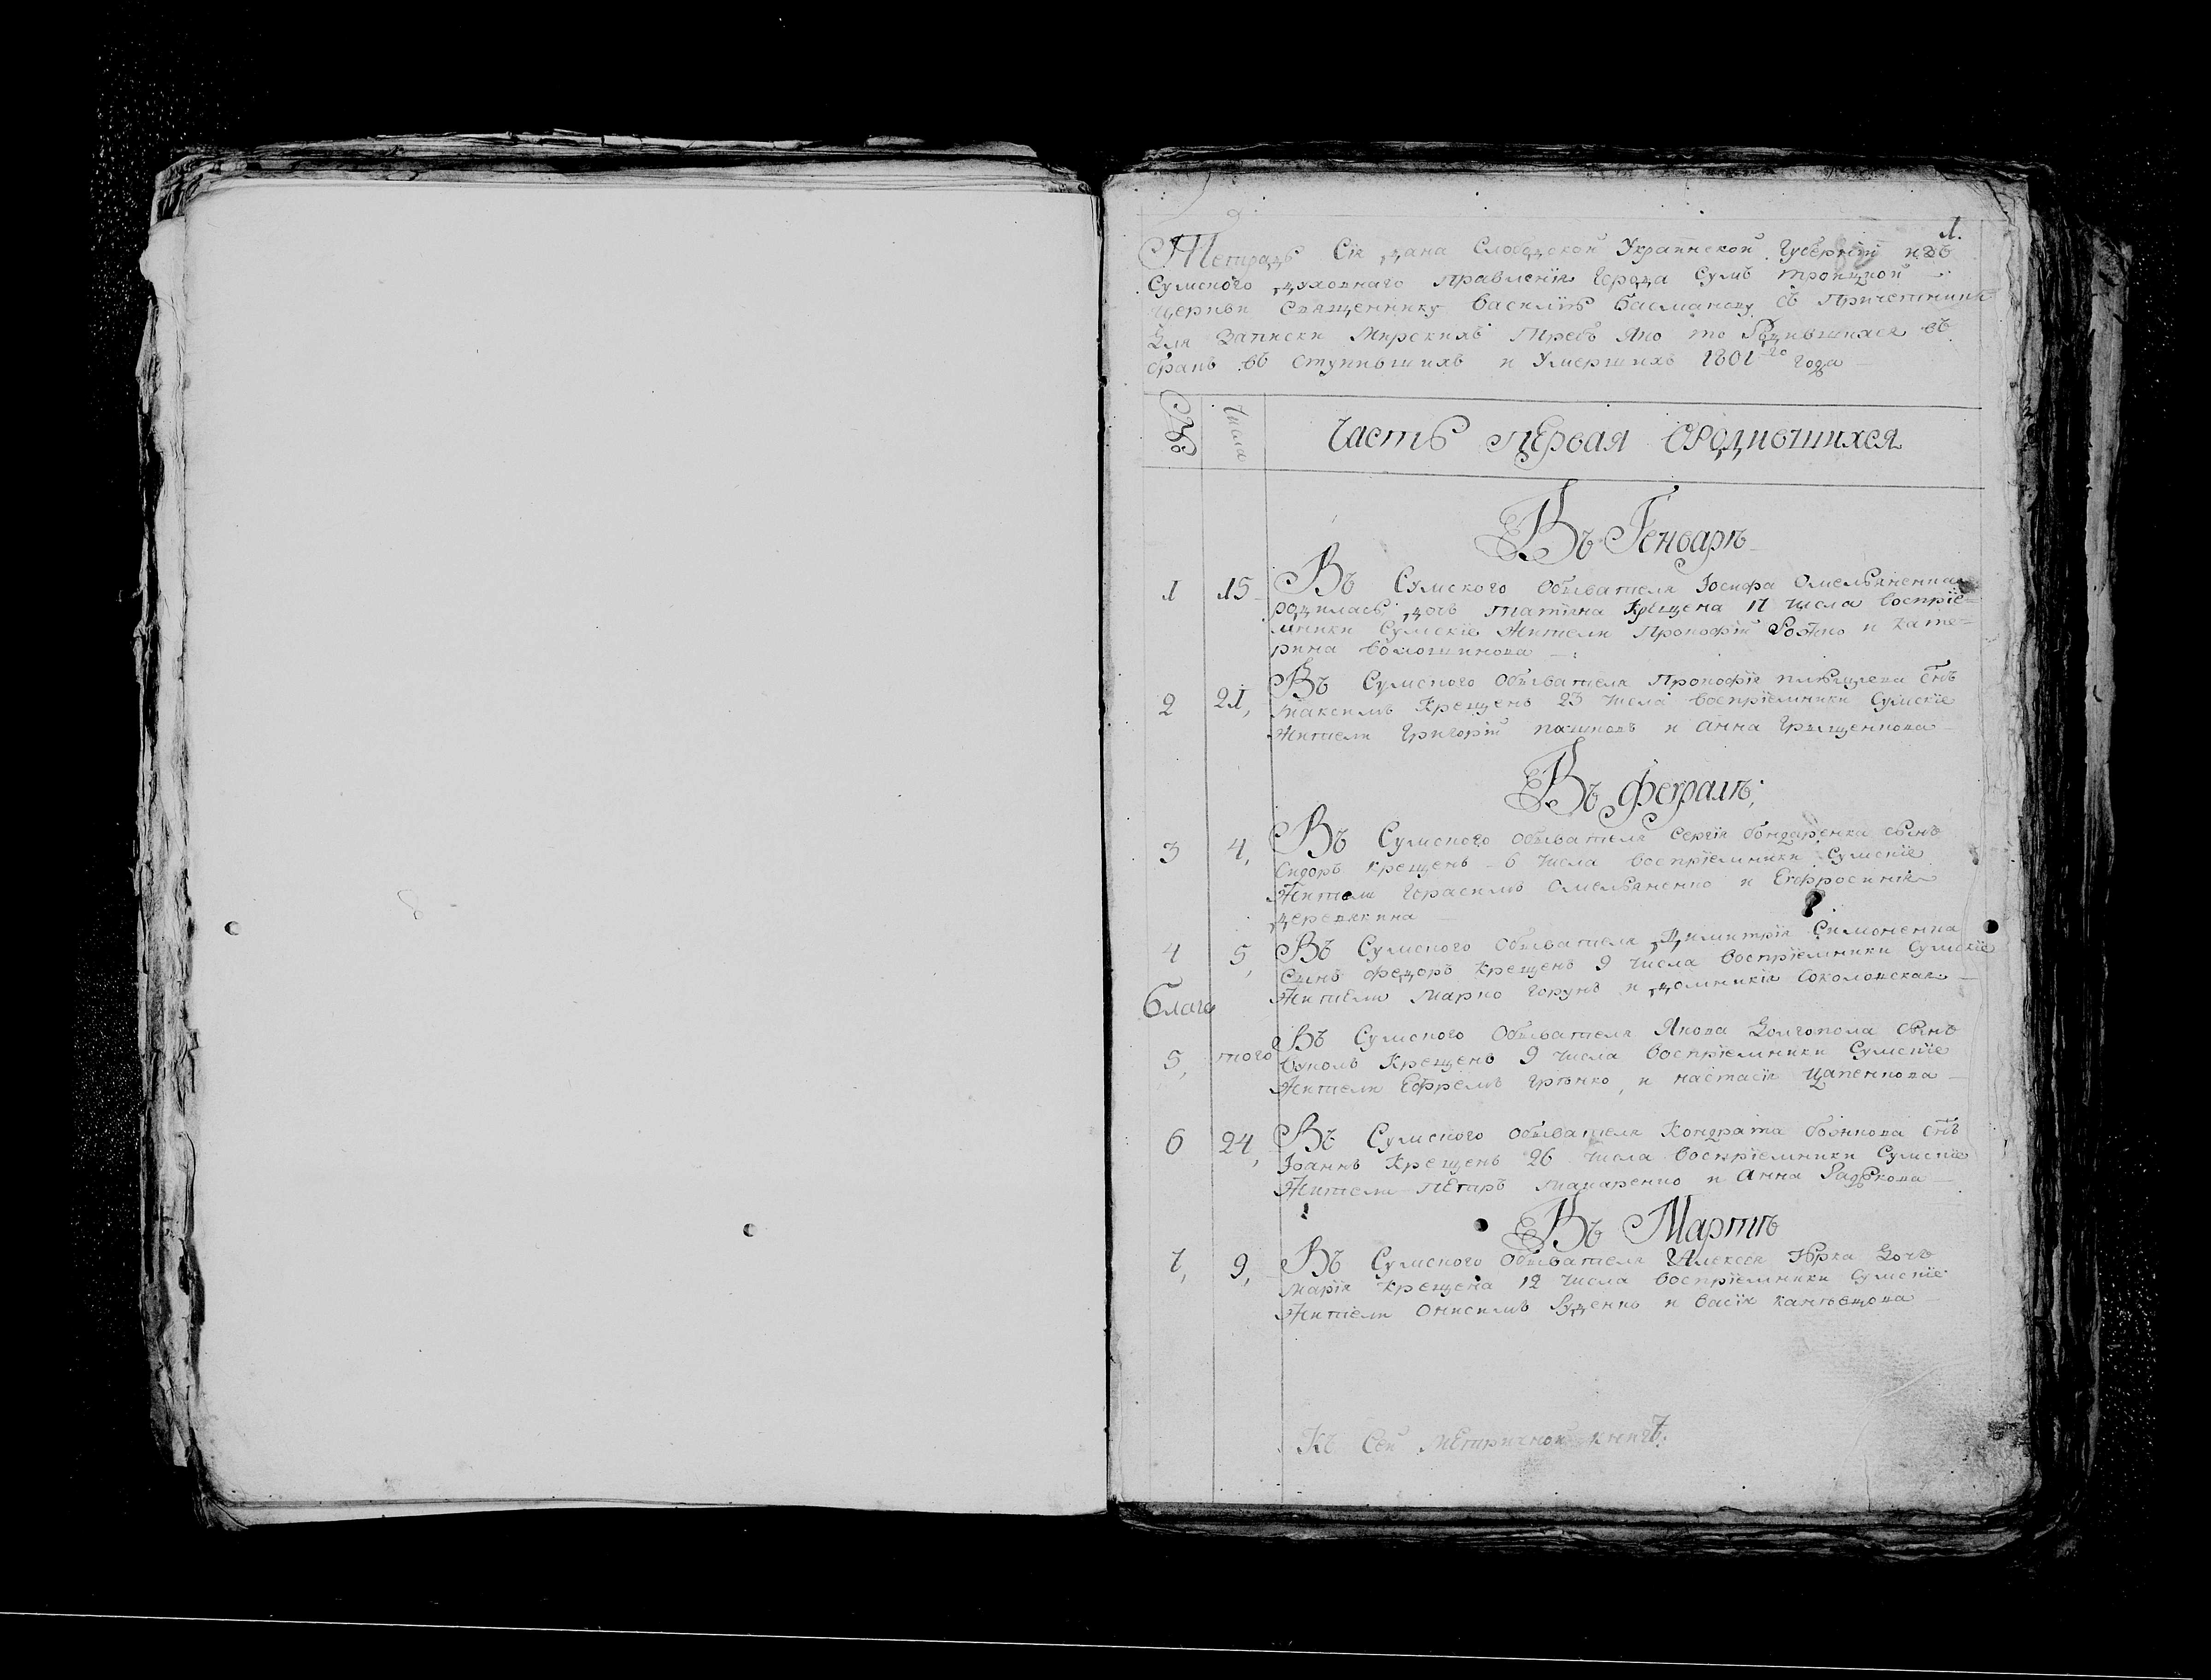 1.
Тетрадь Сія дана Слободской Украинской Губерніи изъ
Сумского духовнаго правленія Города Сумъ троицкой
церкви Священнику Василію Басманову съ Причетники
Для Записки Мирскихъ Требъ Яко то Родившихся въ
бракъ въ ступившихъ и Умершихъ 1801го года
№ Числа Часть первая Ородившихся
Въ Генваръ
1 15 Въ Сумского Обывателя Іосифа Омельяненка
родилась дочь татіана Крещена 17 числа воспріе-
мники Сумскіе Жители Прокофій Рожко и кате-
рина волошинова
2 21, Въ Сумского Обывателя Прокофія снъ
Максимъ Крещенъ 23 числа воспріемники Сумскіе
Жители Григорій и анна Грыщенкова
Въ февралъ,
3 4, Въ Сумского Обывателя Сергія бондаренка сынъ
Сидоръ крещенъ 6 числа воспріемники Сумскіе
Жители Герасимъ Омельяненко и Евфросинія
деревякина
4 5, Въ Сумского Обывателя Димитрія Симоненка
Сынъ Федоръ Крещенъ 9 числа воспріемники Сумскіе
Благо Жители Марко Горунъ и домникія Соколовская
5, того Въ Сумского Обывателя Якова Долгопола сынъ
Вуколъ Крещенъ 9 числа воспріемники Сумскіе
Жители Ефремъ и настасія Цапенкова
6 24, Въ Сумского Обывателя Кондрата божкова снъ
Іоаннъ Крещенъ 26 числа воспріемники Сумскіе
Жители петръ Макаренко и Анна Радькова
Въ Мартъ
7, 9, Въ Сумского Обывателя Алексея Юрка Дочь
марія Крещена 12 числа воспріемники Сумскіе
Жители Онисимъ Руденко и васія
Къ Сей метричной книгѣ